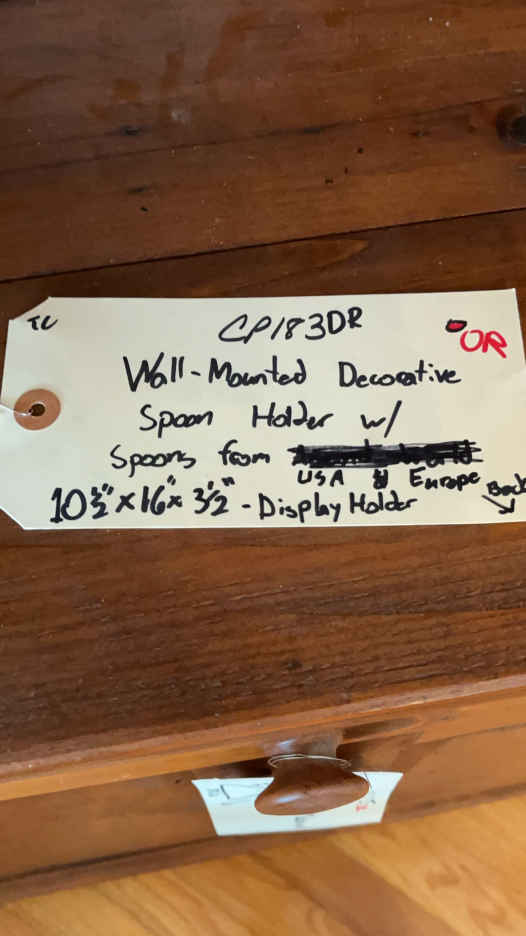 TC
CP183DR
OR
Wall-Mounted Decorative
Spoon Holder w/
Spoons from
USA & Europe
10 1/2" x 16" x 3 1/2" - Display Holder
Back